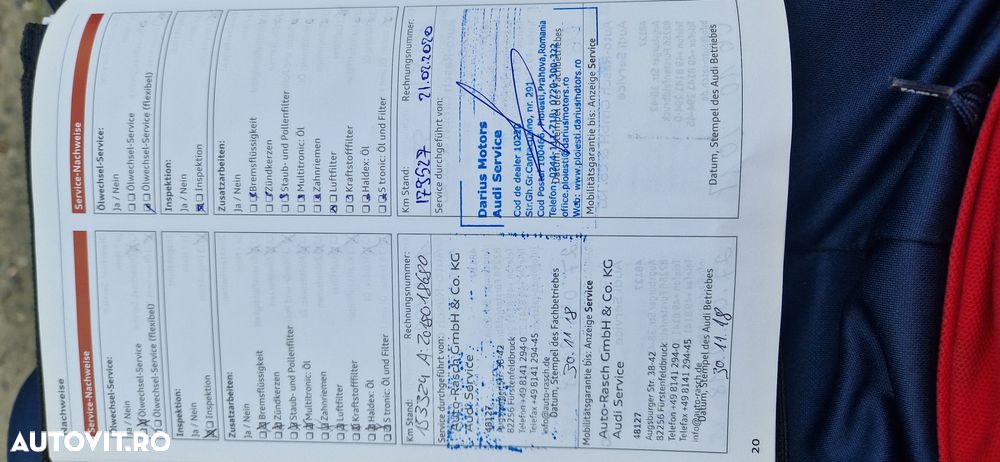 Nachweise
Service-Nachweise
Ölwechsel-Service:
Ja / Nein
Ölwechsel-Service
Ölwechsel-Service (flexibel)
Inspektion:
Ja / Nein
Inspektion
Zusatzarbeiten:
Ja / Nein
Bremsflüssigkeit
Zündkerzen
Staub- und Pollenfilter
Multitronic: Öl
Zahnriemen
Luftfilter
Kraftstofffilter
Haldex: Öl
S tronic: Öl und Filter
Km Stand: Rechnungsnummer:
Service durchgeführt von:
Auto-Rasch GmbH & Co. KG
Audi Service
48127
Augsburger Str. 38-42
82256 Fürstenfeldbruck
Telefon +49 8141 294-0
Telefax +49 8141 294-45
info@auto-rasch.de
Datum, Stempel des Fachbetriebes
30.11.18
Mobilitätsgarantie bis: Anzeige Service
Auto-Rasch GmbH & Co. KG
Audi Service
48127
Augsburger Str. 38-42
82256 Fürstenfeldbruck
Telefon +49 8141 294-0
Telefax +49 8141 294-45
info@auto-rasch.de
Datum, Stempel des Audi Betriebes
30.11.18
20
Service-Nachweise
Ölwechsel-Service:
Ja / Nein
Ölwechsel-Service
Ölwechsel-Service (flexibel)
Inspektion:
Ja / Nein
Inspektion
Zusatzarbeiten:
Ja / Nein
Bremsflüssigkeit
Zündkerzen
Staub- und Pollenfilter
Multitronic: Öl
Zahnriemen
Luftfilter
Kraftstofffilter
Haldex: Öl
S tronic: Öl und Filter
Km Stand: Rechnungsnummer:
179527 21.02.2020
Service durchgeführt von:
Darius Motors
Audi Service
Cod de dealer
Str.Gh.Gr.Cantacuzino, nr. 291
Cod Postal 100466, Ploiesti, Prahova, Romania
Datum, Stempel des Fachbetriebes
office.ploiesti@dariusmotors.ro
Web: www.ploiesti.dariusmotors.ro
Mobilitätsgarantie bis: Anzeige Service
Datum, Stempel des Audi Betriebes
AUTOVIT.RO